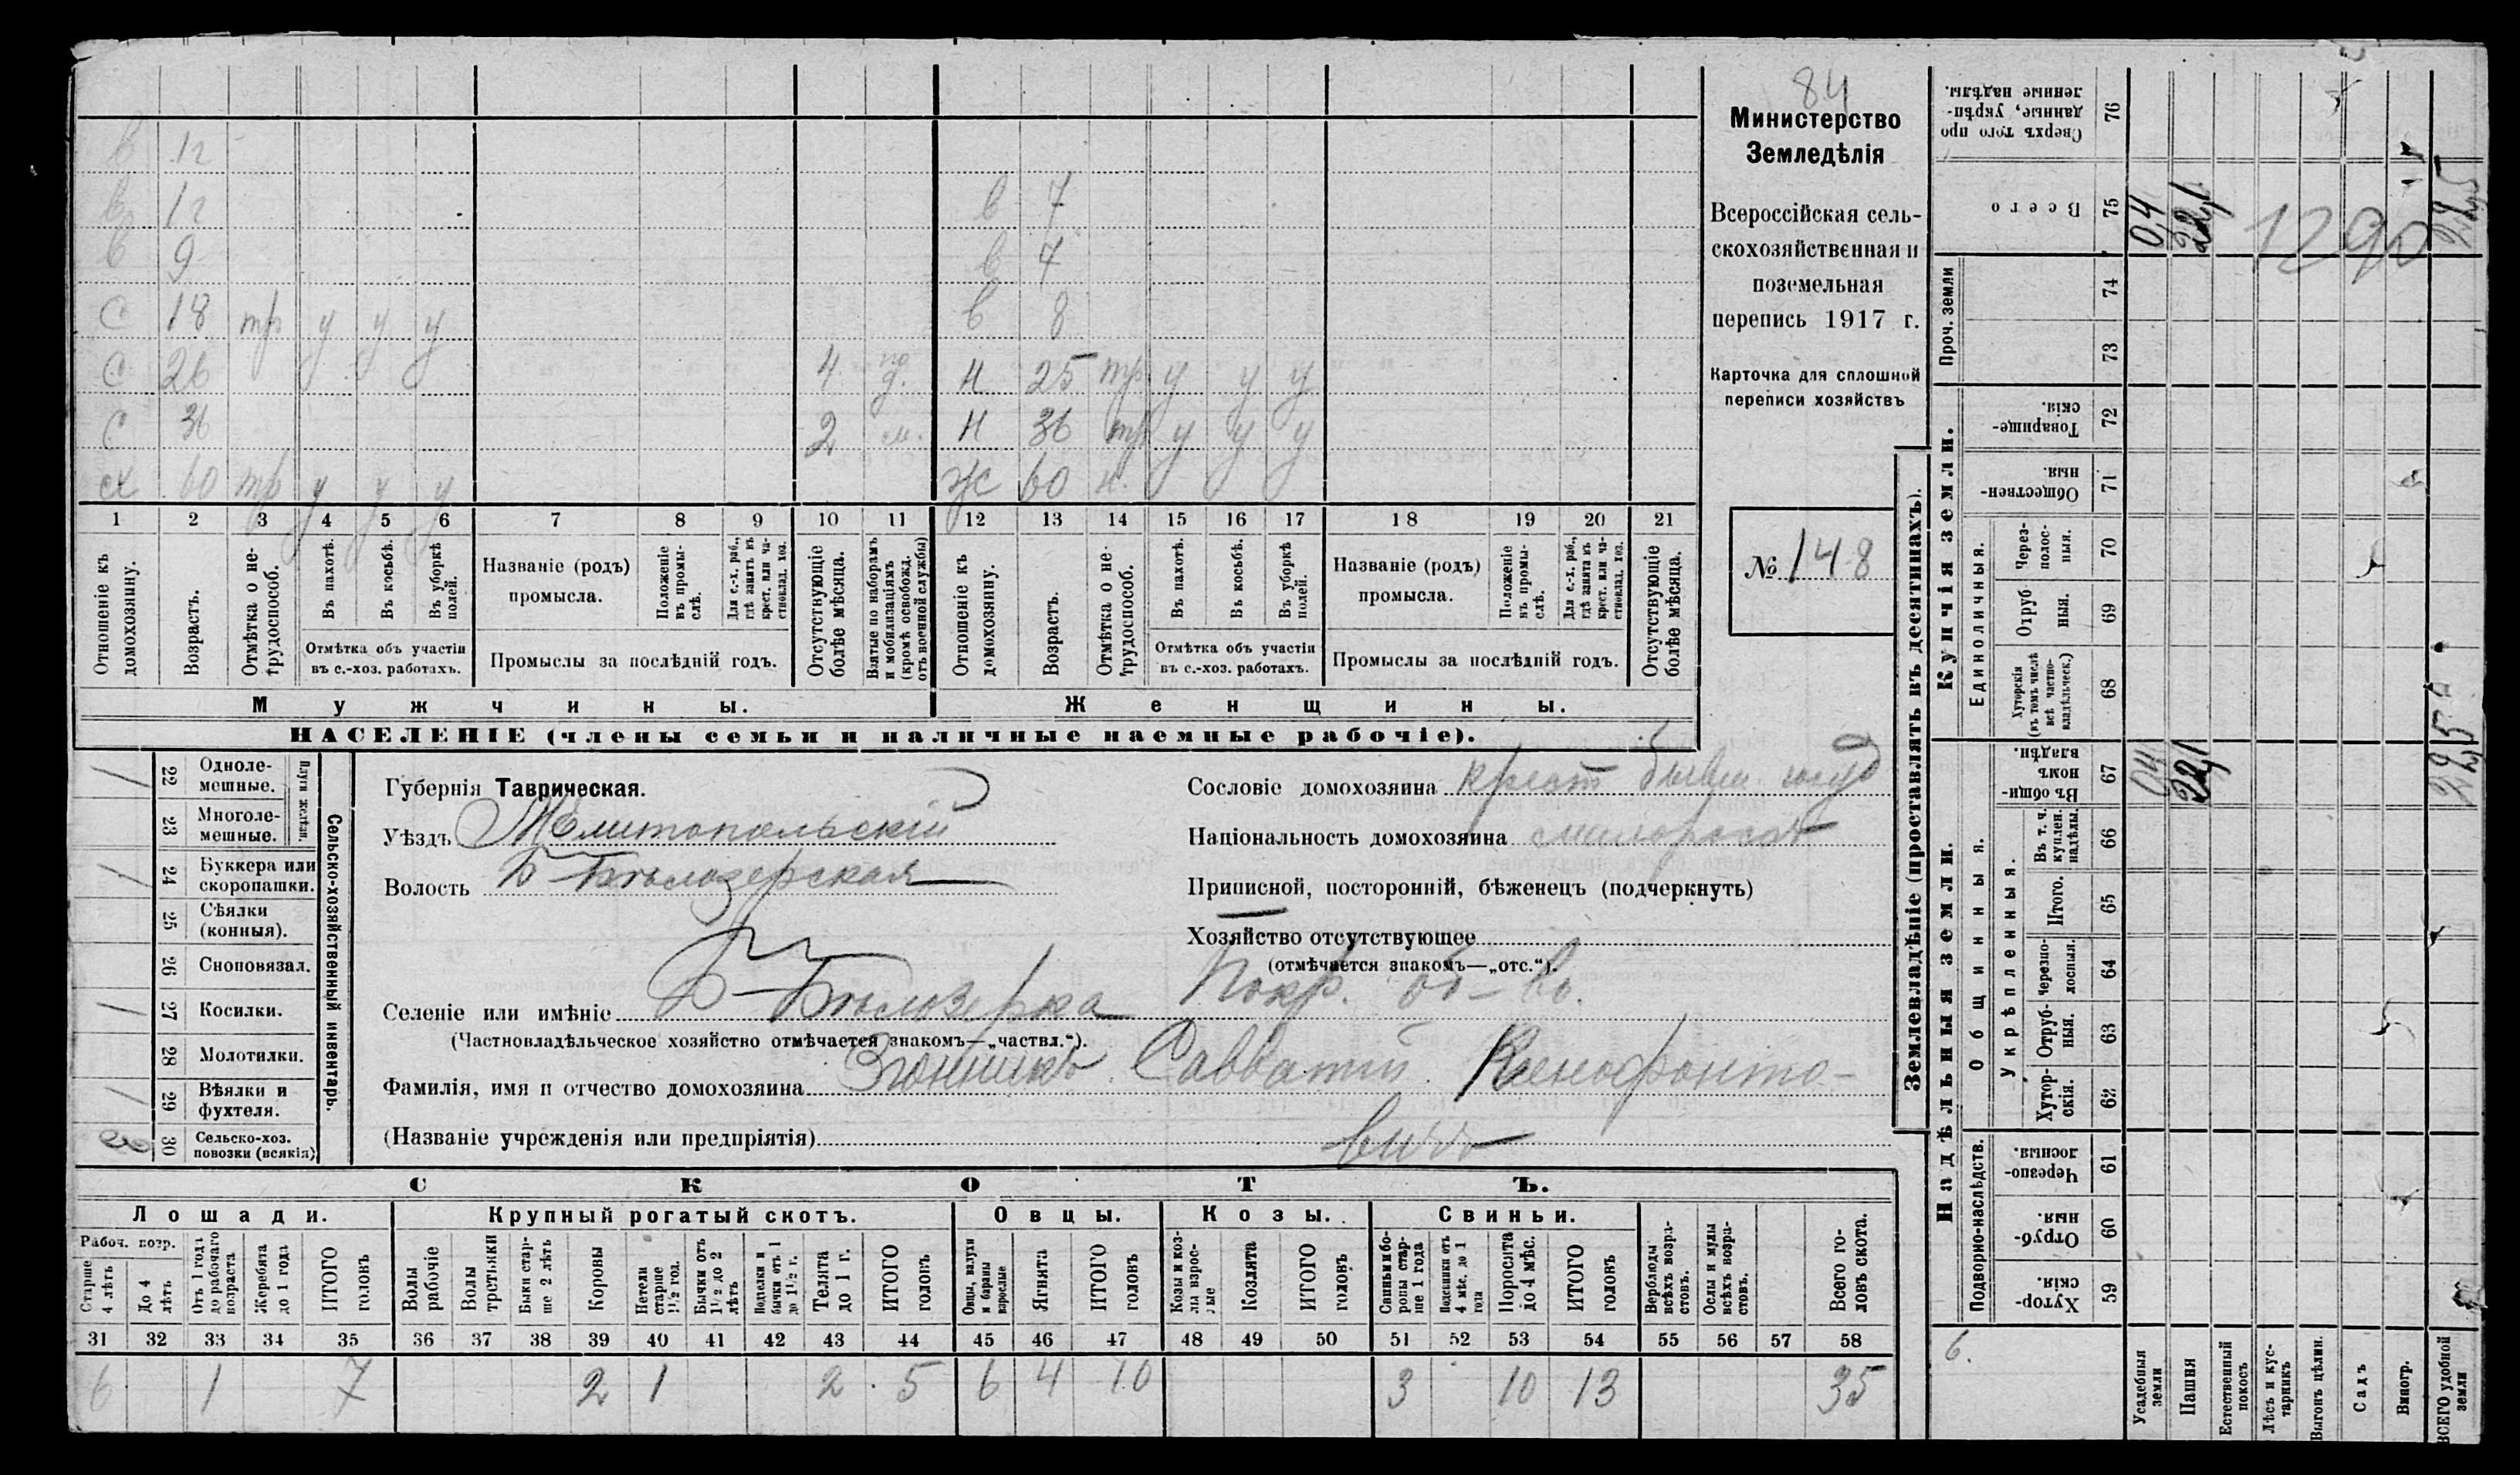 84
Министерство
Земледѣлія
Всероссійская сель-
скохозяйственная и
поземельная
перепись 1917 г.
Карточка для сплошной
переписи хозяйствъ
№ 148
в 12
в 12 в 7
в 9 в 4
с 18 тр у у у в 8
с 26 4 н 25 тр у у у
с 36 2 м. н 36 тр у у у
сх 60 тр у у у ж 60 н.
1 2 3 4 5 6 7 8 9 10 11 12 13 14 15 16 17 18 19 20 21
Отношеніе къ домохозяину.
Возрастъ.
Отмѣтка о не-трудоспособ.
Въ пахотѣ.
Въ косьбѣ.
Въ уборкѣ полей.
Отмѣтка объ участіи
въ с.-хоз. работахъ.
Названіе (родъ)
промысла.
Положеніе въ промы-слѣ.
Для с.-х. раб., гдѣ занятъ въ крест. или ча-стновлад. хоз.
Промыслы за послѣдній годъ.
Отсутствующіе болѣе мѣсяца.
Взятые по наборамъ и мобилизаціямъ (кромѣ освобожд. отъ военной службы)
Отношеніе къ домохозяину.
Возрастъ.
Отмѣтка о не-трудоспособ.
Въ пахотѣ.
Въ косьбѣ.
Въ уборкѣ полей.
Отмѣтка объ участіи
въ с.-хоз. работахъ.
Названіе (родъ)
промысла.
Положеніе въ промы-слѣ.
Для с.-х. раб., гдѣ занята въ крест. или ча-стновлад. хоз.
Промыслы за послѣдній годъ.
Отсутствующіе болѣе мѣсяца.
Мужчины. Женщины.
НАСЕЛЕНІЕ (члены семьи и наличные наемные рабочіе).
Сельско-хозяйственный инвентарь.
Плуги желѣзн.
22 Однолемешные.
23 Многолемешные.
24 Буккера или скоропашки.
25 Сѣялки (конныя).
26 Сноповязал.
27 Косилки.
28 Молотилки.
29 Вѣялки и фухтеля.
30 Сельско-хоз. повозки (всякія)
Губернія Таврическая.
Уѣздъ Мелитопольскій
Волость Б-Бѣлозерская
Сословіе домохозяина крест бывш. госуд
Національность домохозяина малоросъ
Приписной, посторонній, бѣженецъ (подчеркнуть)
Хозяйство отсутствующее
(отмѣчается знакомъ—„отс.“).
Селеніе или имѣніе Б-Бѣлозерка Покр. об-во.
(Частновладѣльческое хозяйство отмѣчается знакомъ—„частвл.“).
Фамилія, имя и отчество домохозяина Згонникъ Савватій Ксенофонто-
(Названіе учрежденія или предпріятія) вичъ
СКОТЪ.
Лошади. Крупный рогатый скотъ. Овцы. Козы. Свиньи.
Рабоч. возр.
Старше 4 лѣтъ
До 4 лѣтъ
Отъ 1 года до рабочаго возраста
Жеребята до 1 года
ИТОГО головъ
Волы рабочіе
Волы третьяки
Быки стар-ше 2 лѣтъ
Коровы
Нетели старше 1½ год.
Бычки отъ 1½ до 2 лѣтъ
Подтелки и бычки отъ 1 до 1½ г.
Телята до 1 г.
ИТОГО головъ
Овцы, валухи и бараны взрослые
Ягнята
ИТОГО головъ
Козы и коз-лы взрос-лые
Козлята
ИТОГО головъ
Свиньи и бо-ровы стар-ше 1 года
Подсвинки отъ 4 мѣс. до 1 года
Поросята до 4 мѣс.
ИТОГО головъ
Верблюды всѣхъ возра-стовъ.
Ослы и мулы всѣхъ возра-стовъ.
Всего го-ловъ скота.
31 32 33 34 35 36 37 38 39 40 41 42 43 44 45 46 47 48 49 50 51 52 53 54 55 56 57 58
6 1 7 2 1 2 5 6 4 10 3 10 13 35
Землевладѣніе (проставлять въ десятинахъ).
Надѣльныя земли.
Купчія земли.
Проч. земли
Подворно-наслѣдств.
Общинныя.
Укрѣпленныя.
Единоличныя.
59 Хутор-скія.
60 Отруб-ныя.
61 Черезпо-лосныя.
62 Хутор-скія.
63 Отруб-ныя.
64 Черезпо-лосныя.
65 Итого.
66 Въ т. ч. куплен. надѣлы.
67 Въ общи-номъ владѣн.
68 Хуторскія (въ томъ числѣ всѣ частно-владѣльческ.)
69 Отруб-ныя.
70 Через-полос-ныя.
71 Обществен-ныя.
72 Товарище-скія.
73
74
75 Всего
76 Сверхъ того про-данные, укрѣп-ленные надѣлы.
Усадебныя земли 04 0,4
Пашня
Естественный покосъ
Лѣсъ и кус-тарникъ
Выгонъ цѣлин.
Садъ
Виногр.
ВСЕГО удобной земли
1290
6.